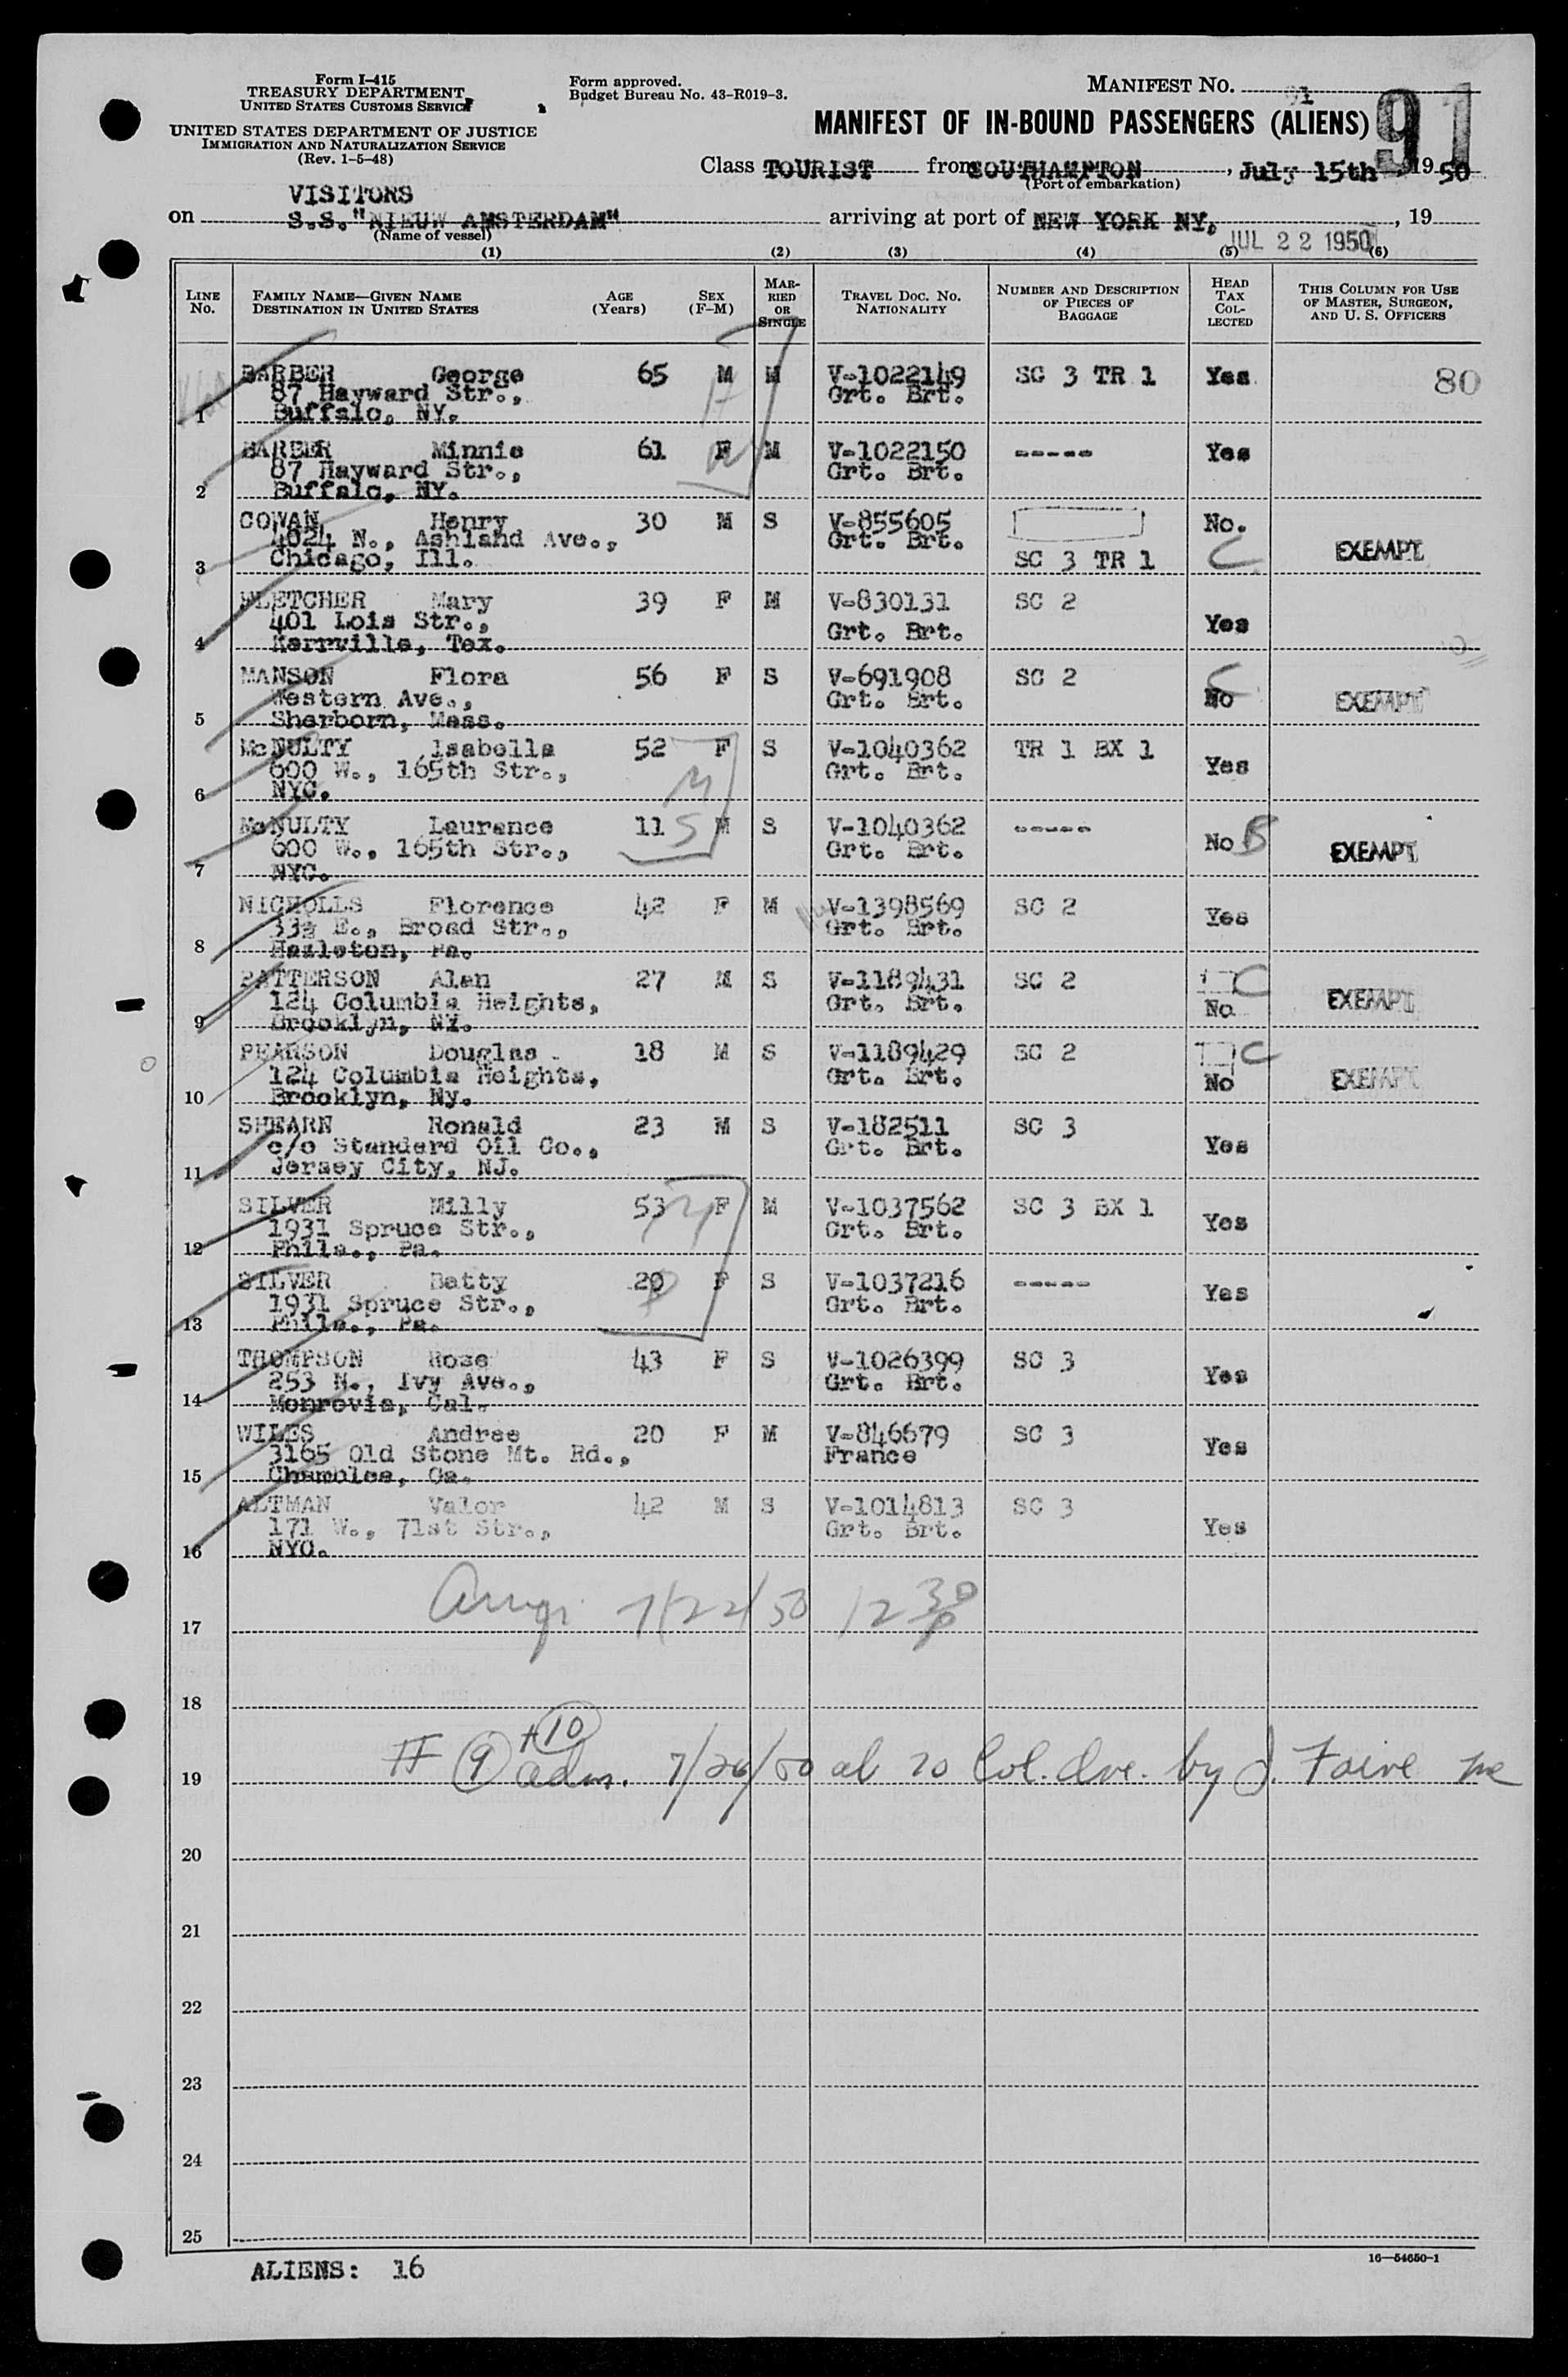 Form I-415
TREASURY DEPARTMENT
UNITED STATES CUSTOMS SERVICE
UNITED STATES DEPARTMENT OF JUSTICE
IMMIGRATION AND NATURALIZATION SERVICE
(Rev. 1-5-48)
Form approved.
Budget Bureau No. 43-R019-3.
MANIFEST NO. 91
91
MANIFEST OF IN-BOUND PASSENGERS (ALIENS)
Class TOURIST from SOUTHAMPTON, July 15th, 1950
(Port of embarkation)
VISITORS
on S.S. "NIEUW AMSTERDAM" arriving at port of NEW YORK NY., 19
(Name of vessel)
JUL 22 1950
(1) (2) (3) (4) (5) (6)
LINE No. FAMILY NAME—GIVEN NAME DESTINATION IN UNITED STATES AGE (Years) SEX (F-M) MARRIED OR SINGLE TRAVEL DOC. NO. NATIONALITY NUMBER AND DESCRIPTION OF PIECES OF BAGGAGE HEAD TAX COLLECTED THIS COLUMN FOR USE OF MASTER, SURGEON, AND U. S. OFFICERS
BARBER George 65 M M V-1022149 SC 3 TR 1 Yes 80
87 Hayward Str., Grt. Brt.
1 Buffalo, NY.
BARBER Minnie 61 F M V-1022150 ----- Yes
87 Hayward Str., Grt. Brt.
2 Buffalo, NY.
COWAN Henry 30 M S V-855605 No.
4024 N., Ashland Ave., Grt. Brt. C EXEMPT
3 Chicago, Ill. SC 3 TR 1
FLETCHER Mary 39 F M V-830131 SC 2
401 Lois Str., Grt. Brt. Yes
4 Kerrville, Tex.
MANSON Flora 56 F S V-691908 SC 2 C
Western Ave., Grt. Brt. No EXEMPT
5 Sherborn, Mass.
McNULTY Isabella 52 F S V-1040362 TR 1 BX 1
600 W., 165th Str., Grt. Brt. Yes
6 NYC.
McNULTY Laurence 11 M S V-1040362 -----
600 W., 165th Str., Grt. Brt. No B EXEMPT
7 NYC.
NICHOLLS Florence 42 F M V-1398569 SC 2
33½ E., Broad Str., Grt. Brt. Yes
8 Hazleton, Pa.
PATTERSON Alan 27 M S V-1189431 SC 2 C
124 Columbia Heights, Grt. Brt. No EXEMPT
9 Brooklyn, NY.
PEARSON Douglas 18 M S V-1189429 SC 2 C
124 Columbia Heights, Grt. Brt. No EXEMPT
10 Brooklyn, Ny.
SHEARN Ronald 23 M S V-182511 SC 3
c/o Standard Oil Co., Grt. Brt. Yes
11 Jersey City, NJ.
SILVER Milly 53 F M V-1037562 SC 3 BX 1
1931 Spruce Str., Grt. Brt. Yes
12 Phila., Pa.
SILVER Betty 20 F S V-1037216 -----
1931 Spruce Str., Grt. Brt. Yes
13 Phila., Pa.
THOMPSON Rose 43 F S V-1026399 SC 3
253 N., Ivy Ave., Grt. Brt. Yes
14 Monrovia, Cal.
WILES Andree 20 F M V-846679 SC 3
3165 Old Stone Mt. Rd., France Yes
15 Chamblee, Ga.
ALTMAN Valor 42 M S V-1014813 SC 3
171 W., 71st Str., Grt. Brt. Yes
16 NYC.
7/22/50 12 30 p
17
18
+ 10
19 9 adm. 7/26/50 at 70 Col. Ave. by J.
20
21
22
23
24
25
16—54650-1
ALIENS: 16